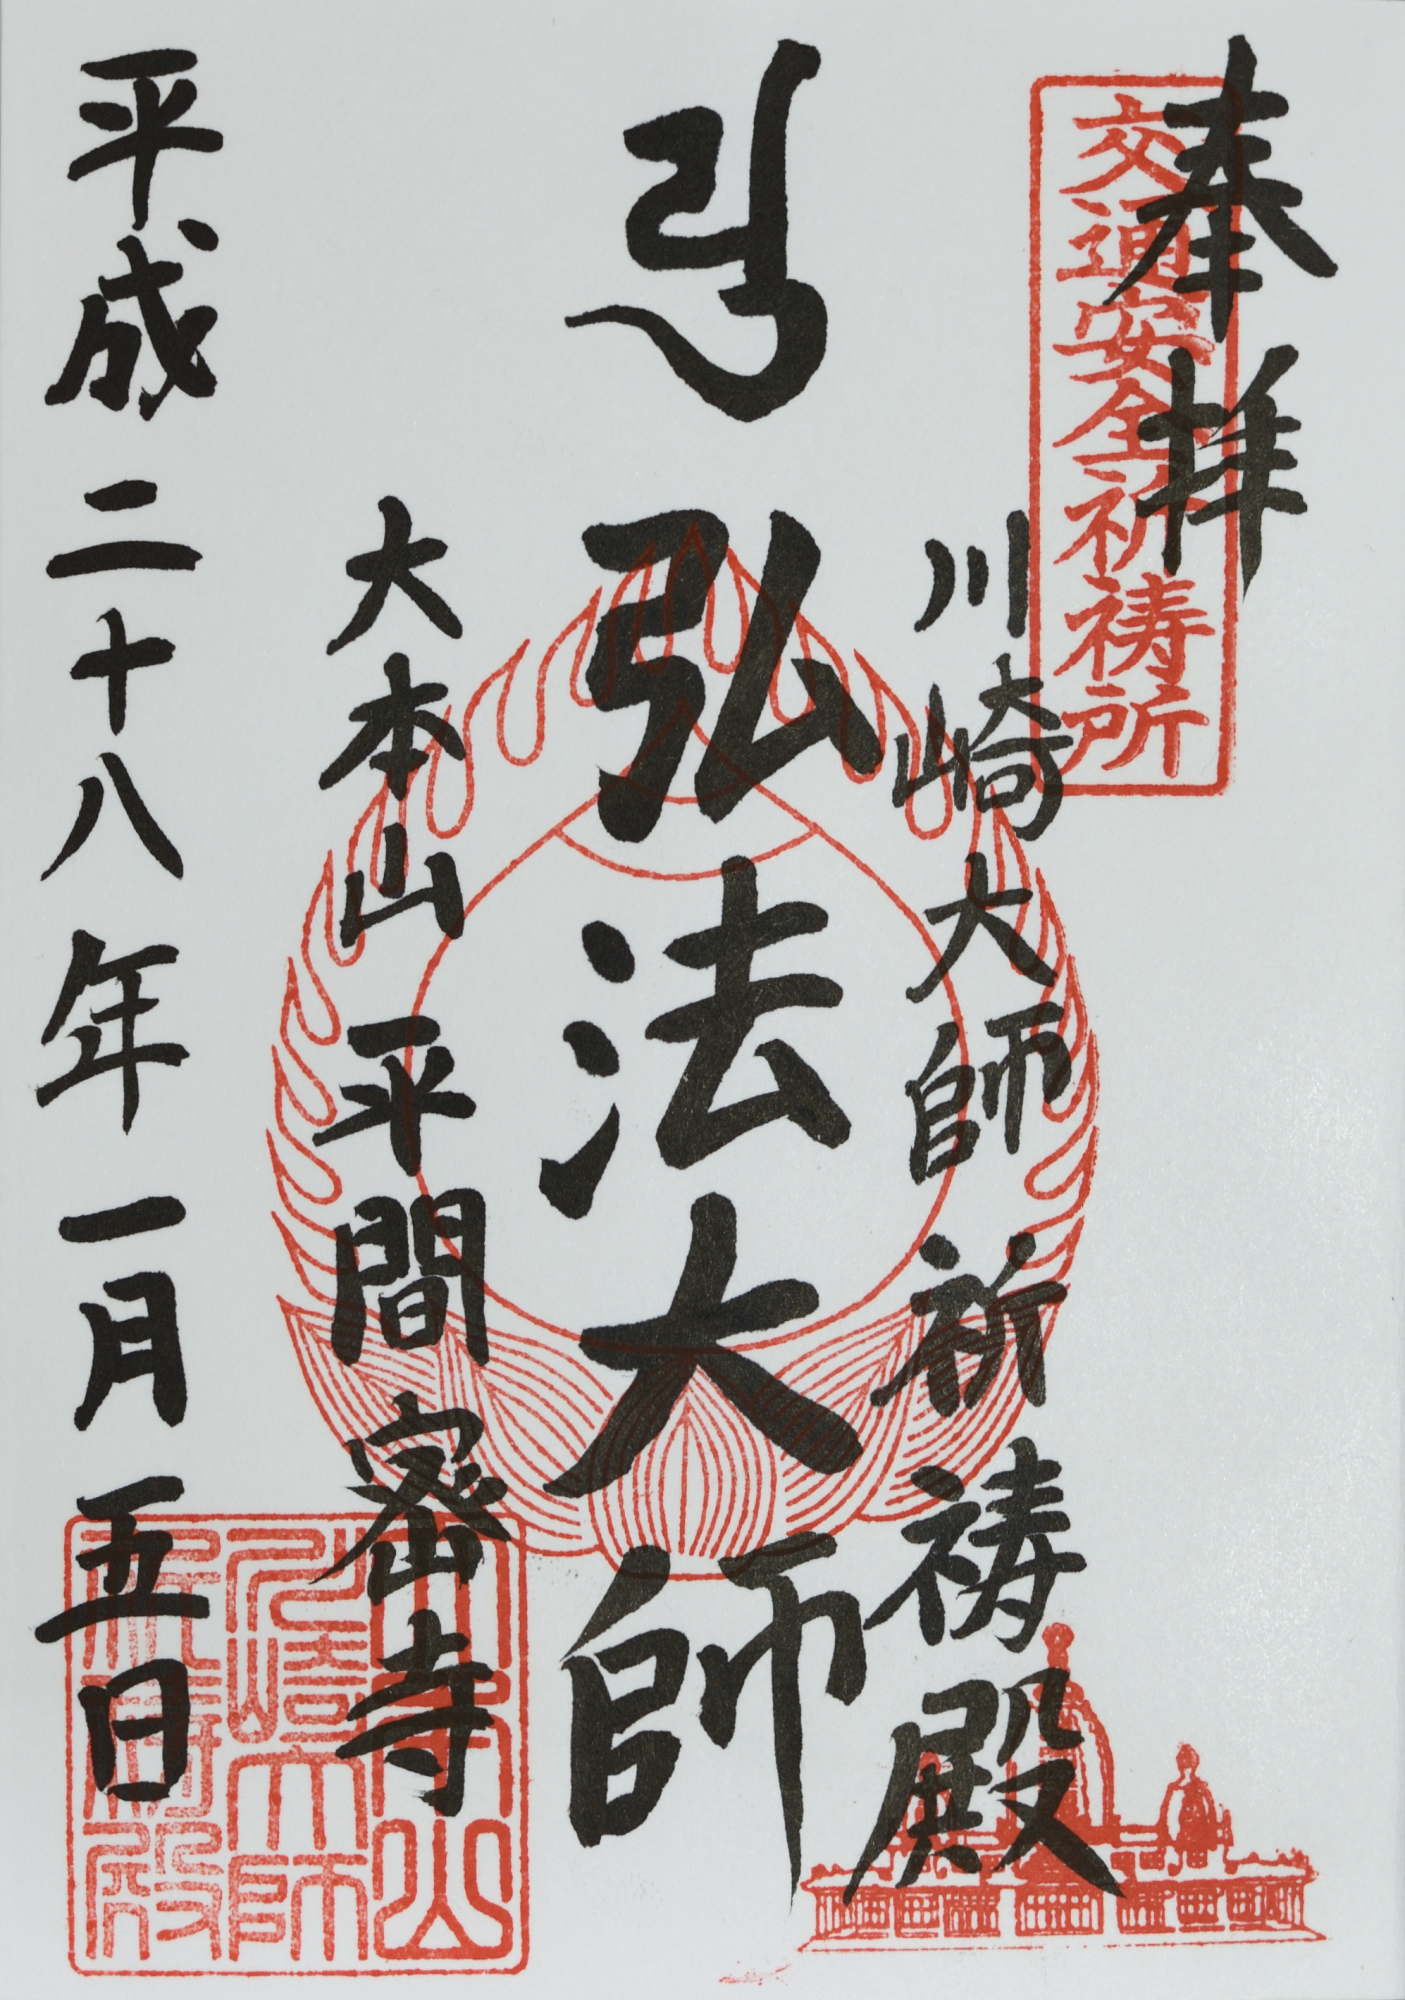 奉拝
交通安全祈祷所
川崎大師 祈祷殿
弘法大師
大本山 平間密寺
平成二十八年一月五日
大本山
川崎大師
祈祷殿